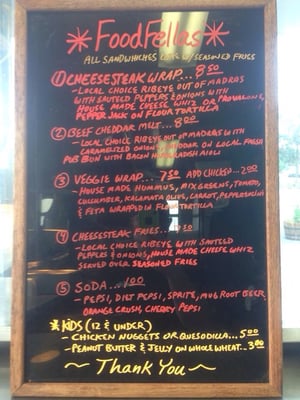 * FoodFellas *
ALL SANDWHICHES COME W/ SEASONED FRIES
① CHEESESTEAK WRAP... 8.50
- LOCAL CHOICE RIBEYE OUT OF MADRAS
WITH SAUTEED PEPPERS & ONIONS WITH
HOUSE MADE CHEESE WHIZ OR PROVALONE,
PEPPER JACK ON FLOUR TORTILLA
② BEEF CHEDDAR MELT... 8.00
- LOCAL CHOICE RIBEYE OUT OF MADRAS WITH
CARAMELIZED ONIONS & CHEDDAR ON LOCAL FRESH
PUB BUN WITH BACON HORSERADISH AIOLI
③ VEGGIE WRAP... 7.50 ADD CHICKEN... 2.00
- HOUSE MADE HUMMUS, MIX GREENS, TOMATO,
CUCUMBER, KALAMATA OLIVE, CARROT, PEPPERONCINI
& FETA WRAPPED IN FLOUR TORTILLA
④ CHEESESTEAK FRIES...
- LOCAL CHOICE RIBEYE WITH SAUTEED
PEPPERS & ONIONS, HOUSE MADE CHEESE WHIZ
SERVED OVER SEASONED FRIES
⑤ SODA... 1.00
- PEPSI, DIET PEPSI, SPRITE, MUG ROOT BEER,
ORANGE CRUSH, CHERRY PEPSI
* KIDS (12 & UNDER)
- CHICKEN NUGGETS OR QUESODILLA... 5.00
- PEANUT BUTTER & JELLY ON WHOLE WHEAT... 3.00
~ Thank You ~